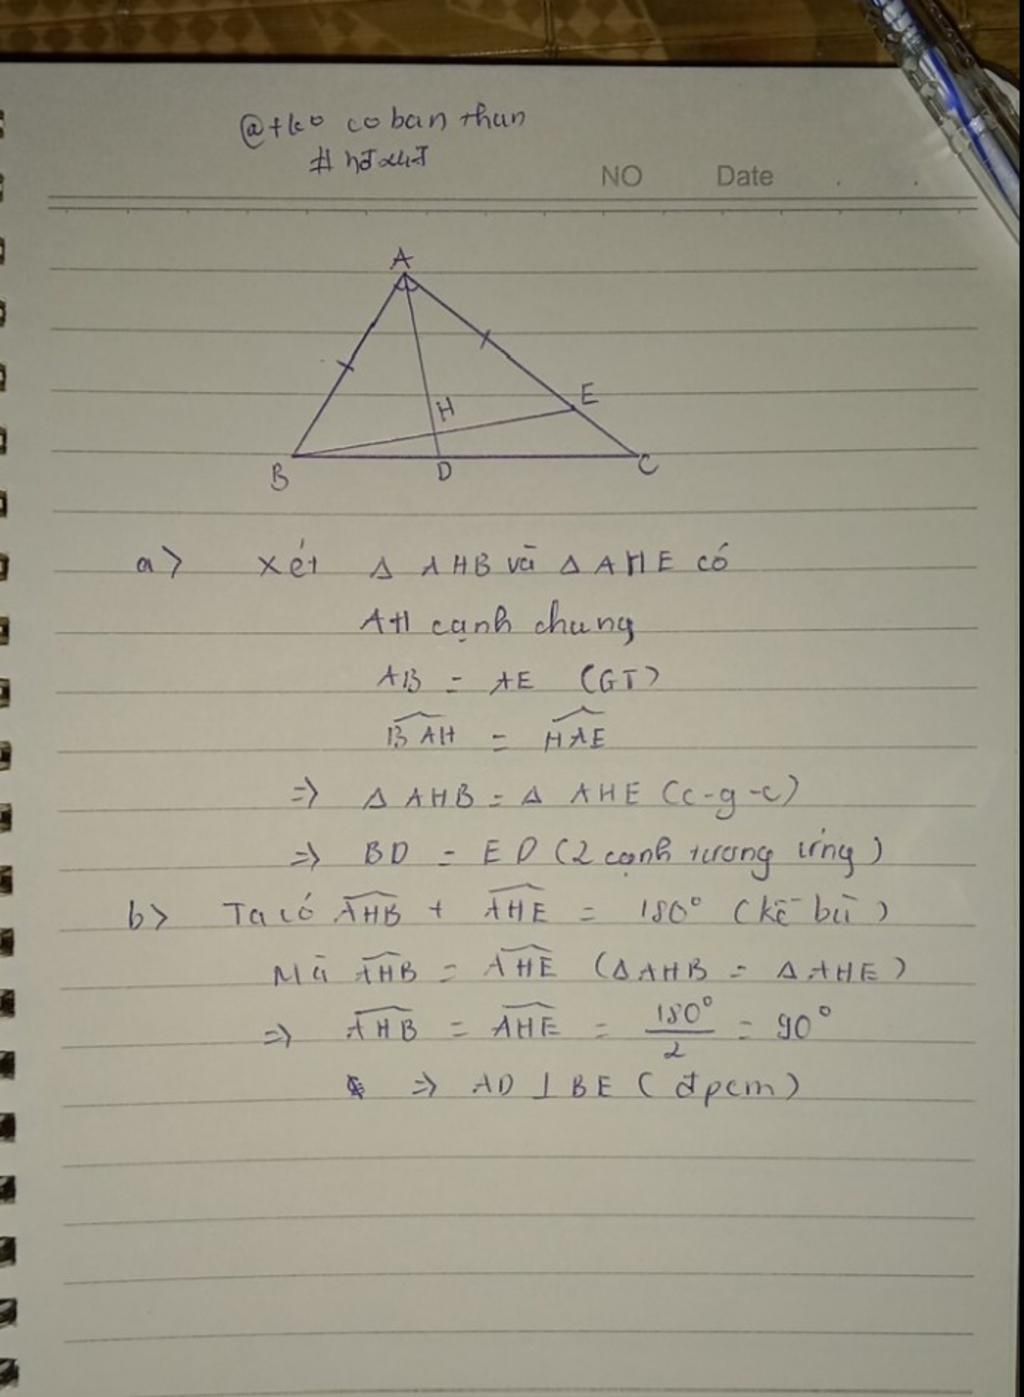 @tko co ban than
NO Date
A
H
E
B
D
C
a> Xét Δ AHB và Δ AHE có
AH cạnh chung
AB = AE (GT)
\widehat{BAH} = \widehat{HAE}
=> Δ AHB = Δ AHE (c-g-c)
=> BD = ED (2 cạnh tương ứng)
b> Ta có \widehat{AHB} + \widehat{AHE} = 180° (kề bù)
Mà \widehat{AHB} = \widehat{AHE} (Δ AHB = Δ AHE)
=> \widehat{AHB} = \widehat{AHE} = \frac{180°}{2} = 90°
=> AD ⊥ BE (đpcm)